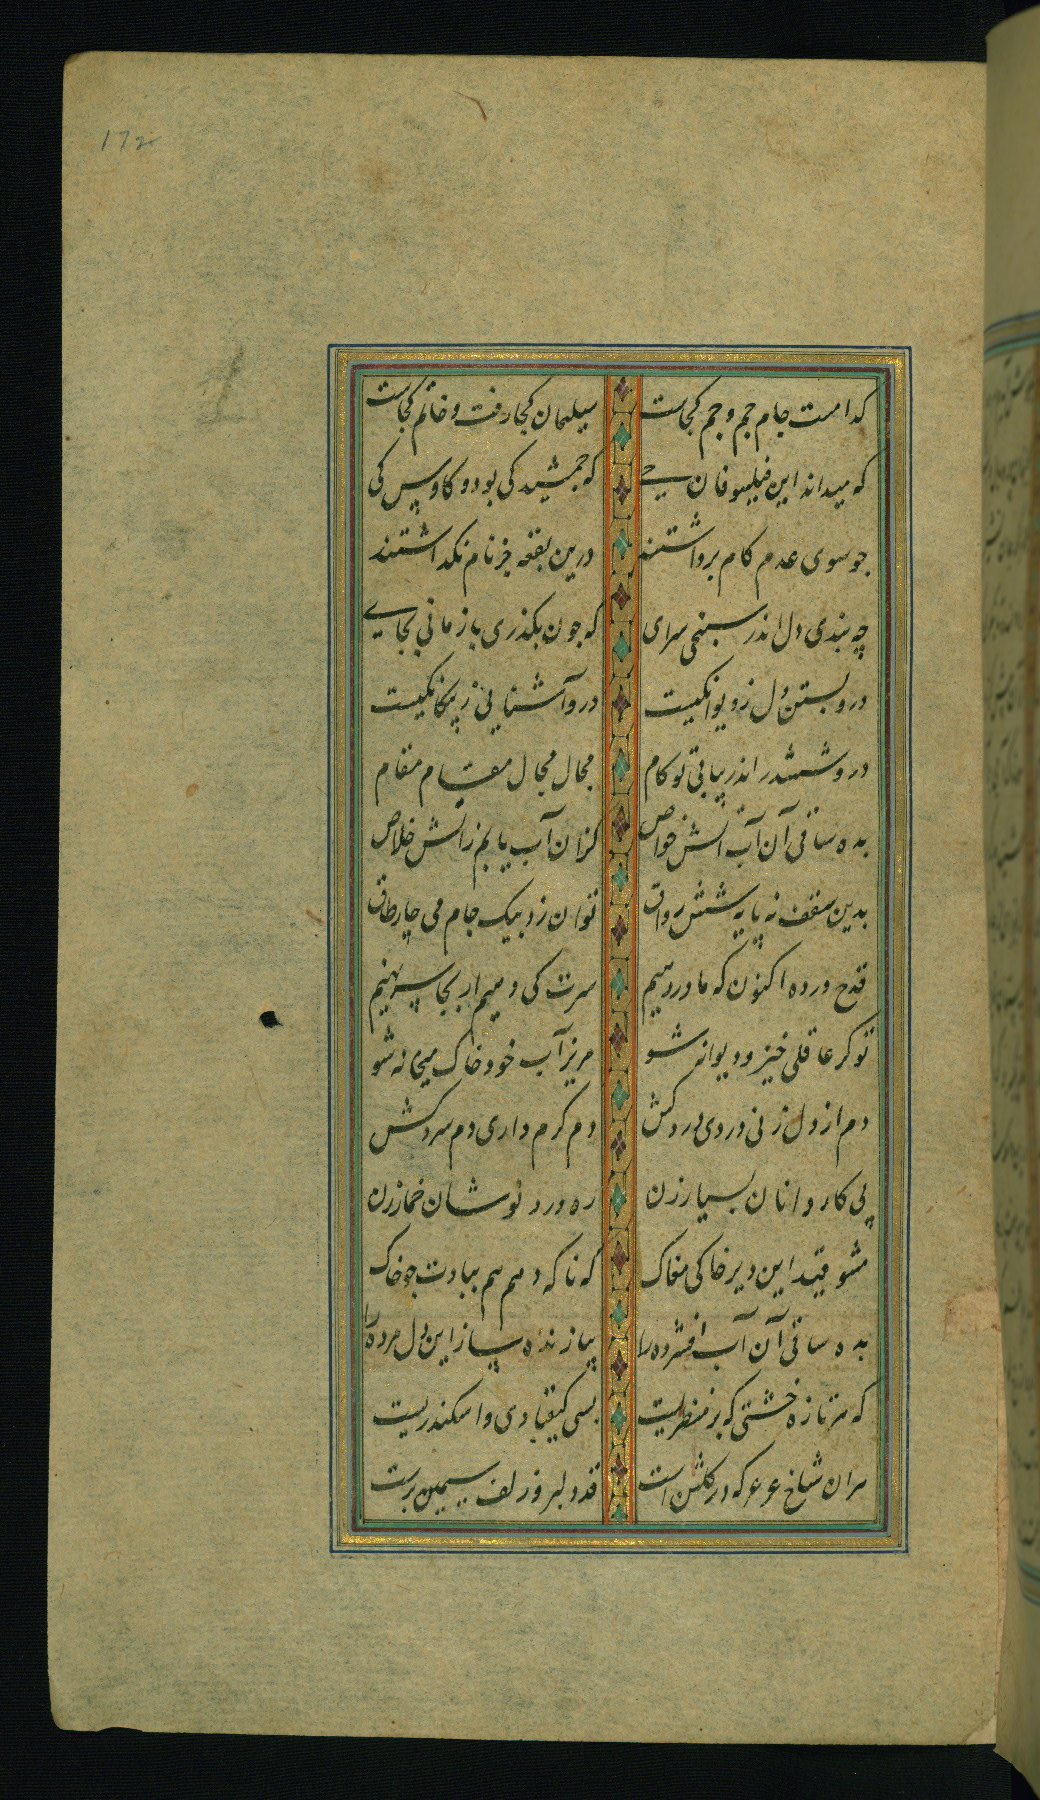 172
کدامست جام جم و جم کجاست سلیمان کجا رفت و خاتم کجاست
که میداند این فیلسوفان حی که جمشید کی بود و کاوس کی
جو سوی عدم کام برداشتند درین بقعه جز نام نکداشتند
چه بندی دل اندر سپنجی سرای که جون بکذری باز مانی بجای
درو بستن دل ز دیوانکیست درو آشنایی ز بیکانکیست
درو ششدر اندر نیابی تو کام مجال مجال مقام مقام
بده ساقی آن آب آتش خواص کزان آب یابم ز آتش خلاص
بدین سقف نه پایه شش رواق توان زد بیک جام می چار طاق
قدح درده اکنون که ما دردهیم سرت کی دهیم ار بجا سر نهیم
تو کر عاقلی خیز و دیوانه شو مریز آب خود خاک میخانه شو
دم از دل زنی دردی درد کش دم کرم داری دم سرد کش
پی کاردانان بسیار زن ره درد نوشان خمار زن
مشو قید این دیر خاکی مغاک که ناکه دهم هم ببادت جو خاک
بده ساقی آن آب افشرده را بیا زنده ساز این دل مرده را
که هر تازه خشتی که بر منظریست بسی کیقبادی و اسکندریست
هران شاخ عرعر که در کلشن است قد دلبر و زلف سیمین برست